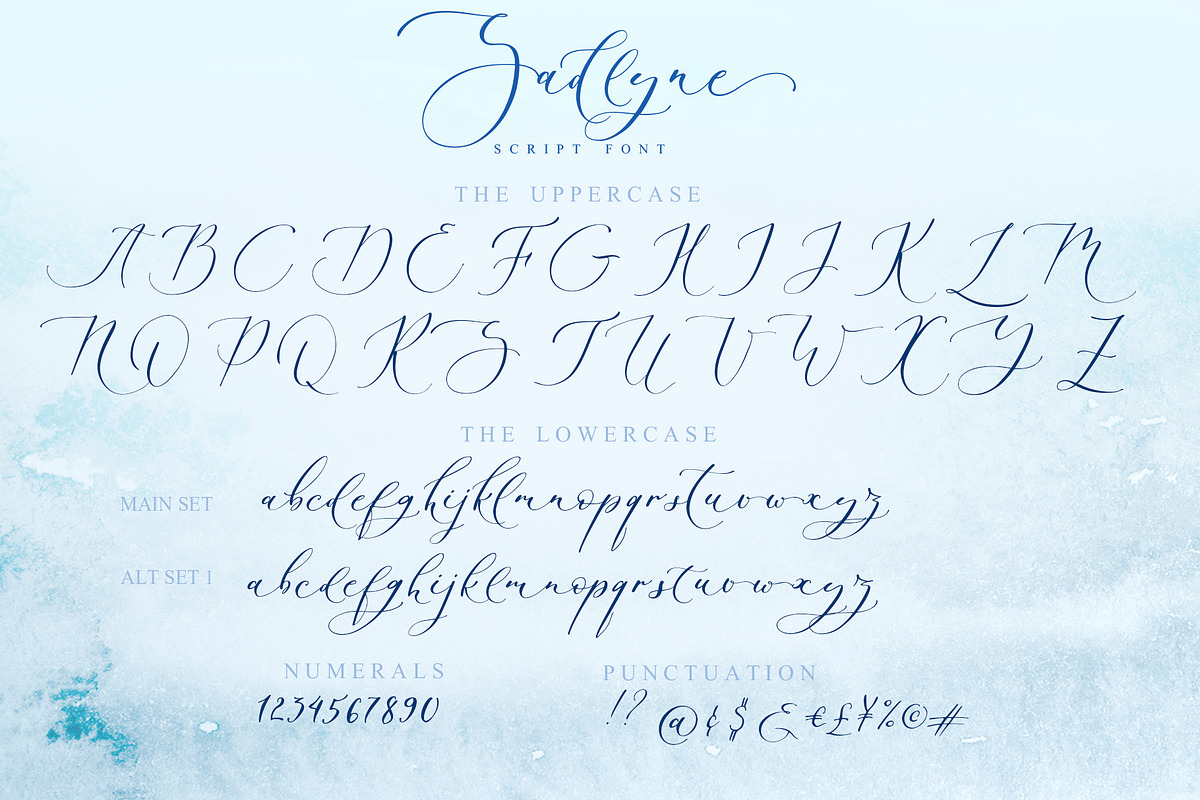 Sadlyne
SCRIPT FONT
THE UPPERCASE
A B C D E F G H I J K L M
N O P Q R S T U V W X Y Z
THE LOWERCASE
MAIN SET abcdefghijklmnopqrstuvwxyz
ALT SET 1 abcdefghijklmnopqrstuvwxyz
NUMERALS
1234567890
PUNCTUATION
!? @¢$&€£¥%©#